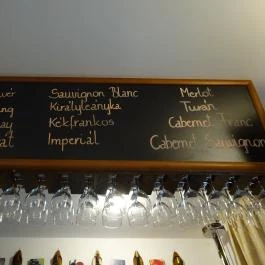 Sauvignon Blanc Merlot
Királyleányka Turán
Kékfrankos Cabernet Franc
Imperiál Cabernet Sauvignon